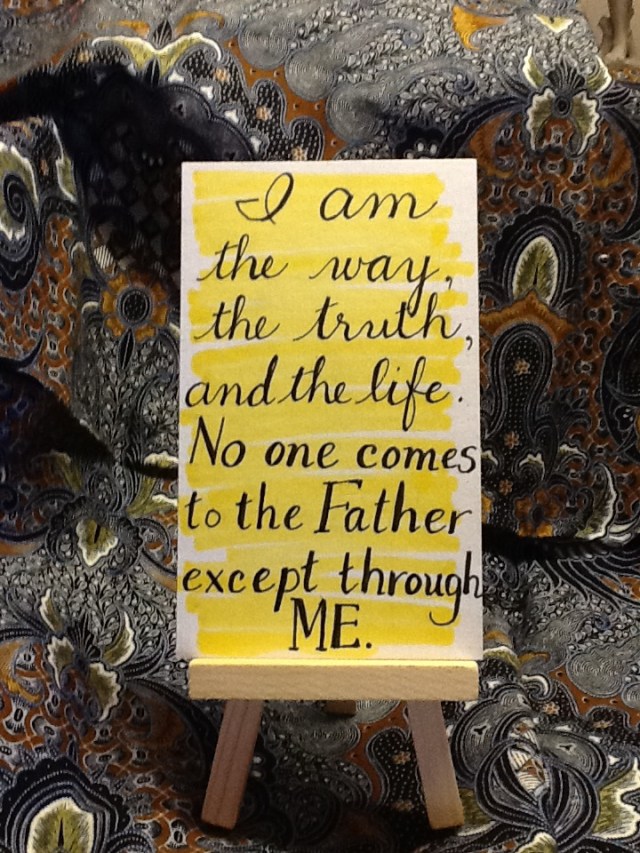 I am
the way,
the truth,
and the life.
No one comes
to the Father
except through
ME.